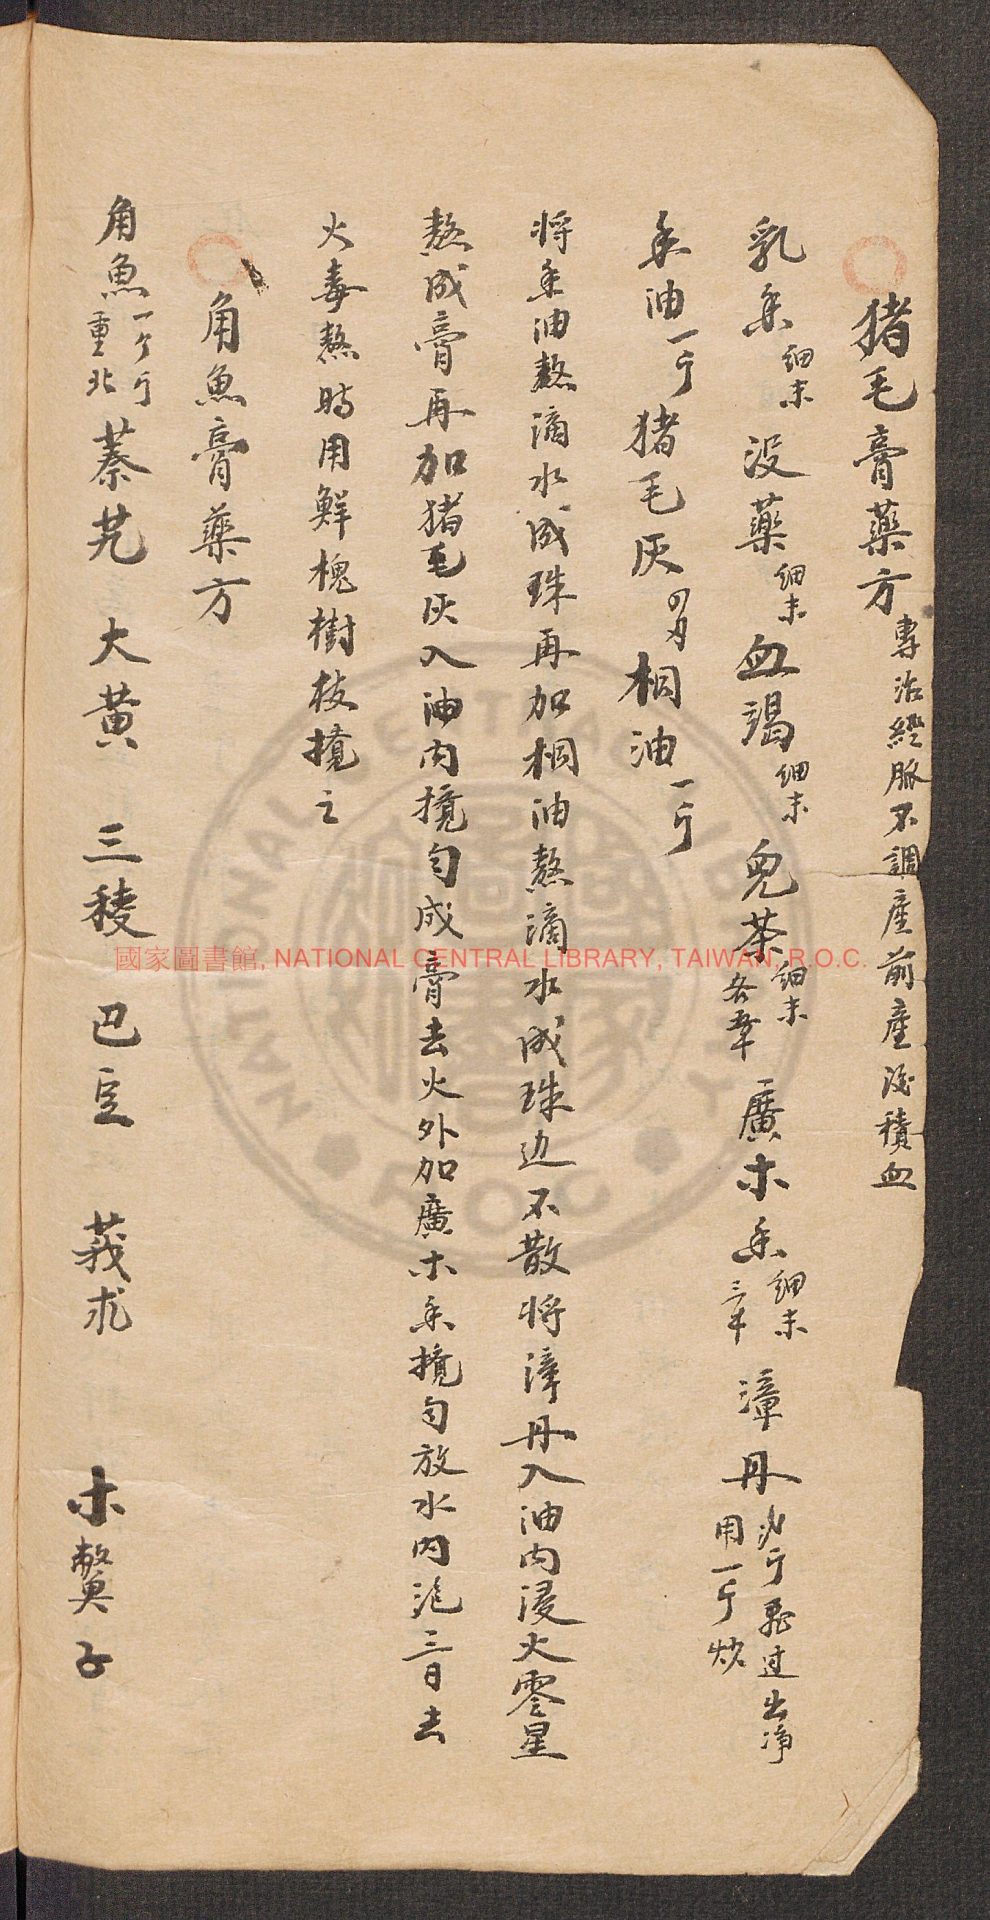 猪毛膏藥方 專治經脈不調產前產后積血
乳香細末 沒藥細末 血竭細末 兒茶細末各五𠦑 廣木香細末三𠦑 漳丹 斤 過出淨用一斤炒
香油一斤 猪毛灰四月 桐油一斤
將香油熬滴水成珠再加桐油熬滴水成珠边不散將漳丹入油內浸火零星
熬成膏再加猪毛灰入油內攪匀成膏去火外加廣木香攪匀放水內泡三日去
火毒熬時用鮮槐樹枝攪之
角魚膏藥方
角魚一个重 斤 蓁艽 大黃 三稜 巴豆 莪朮 木鱉子
國家圖書館, NATIONAL CENTRAL LIBRARY, TAIWAN, R.O.C.